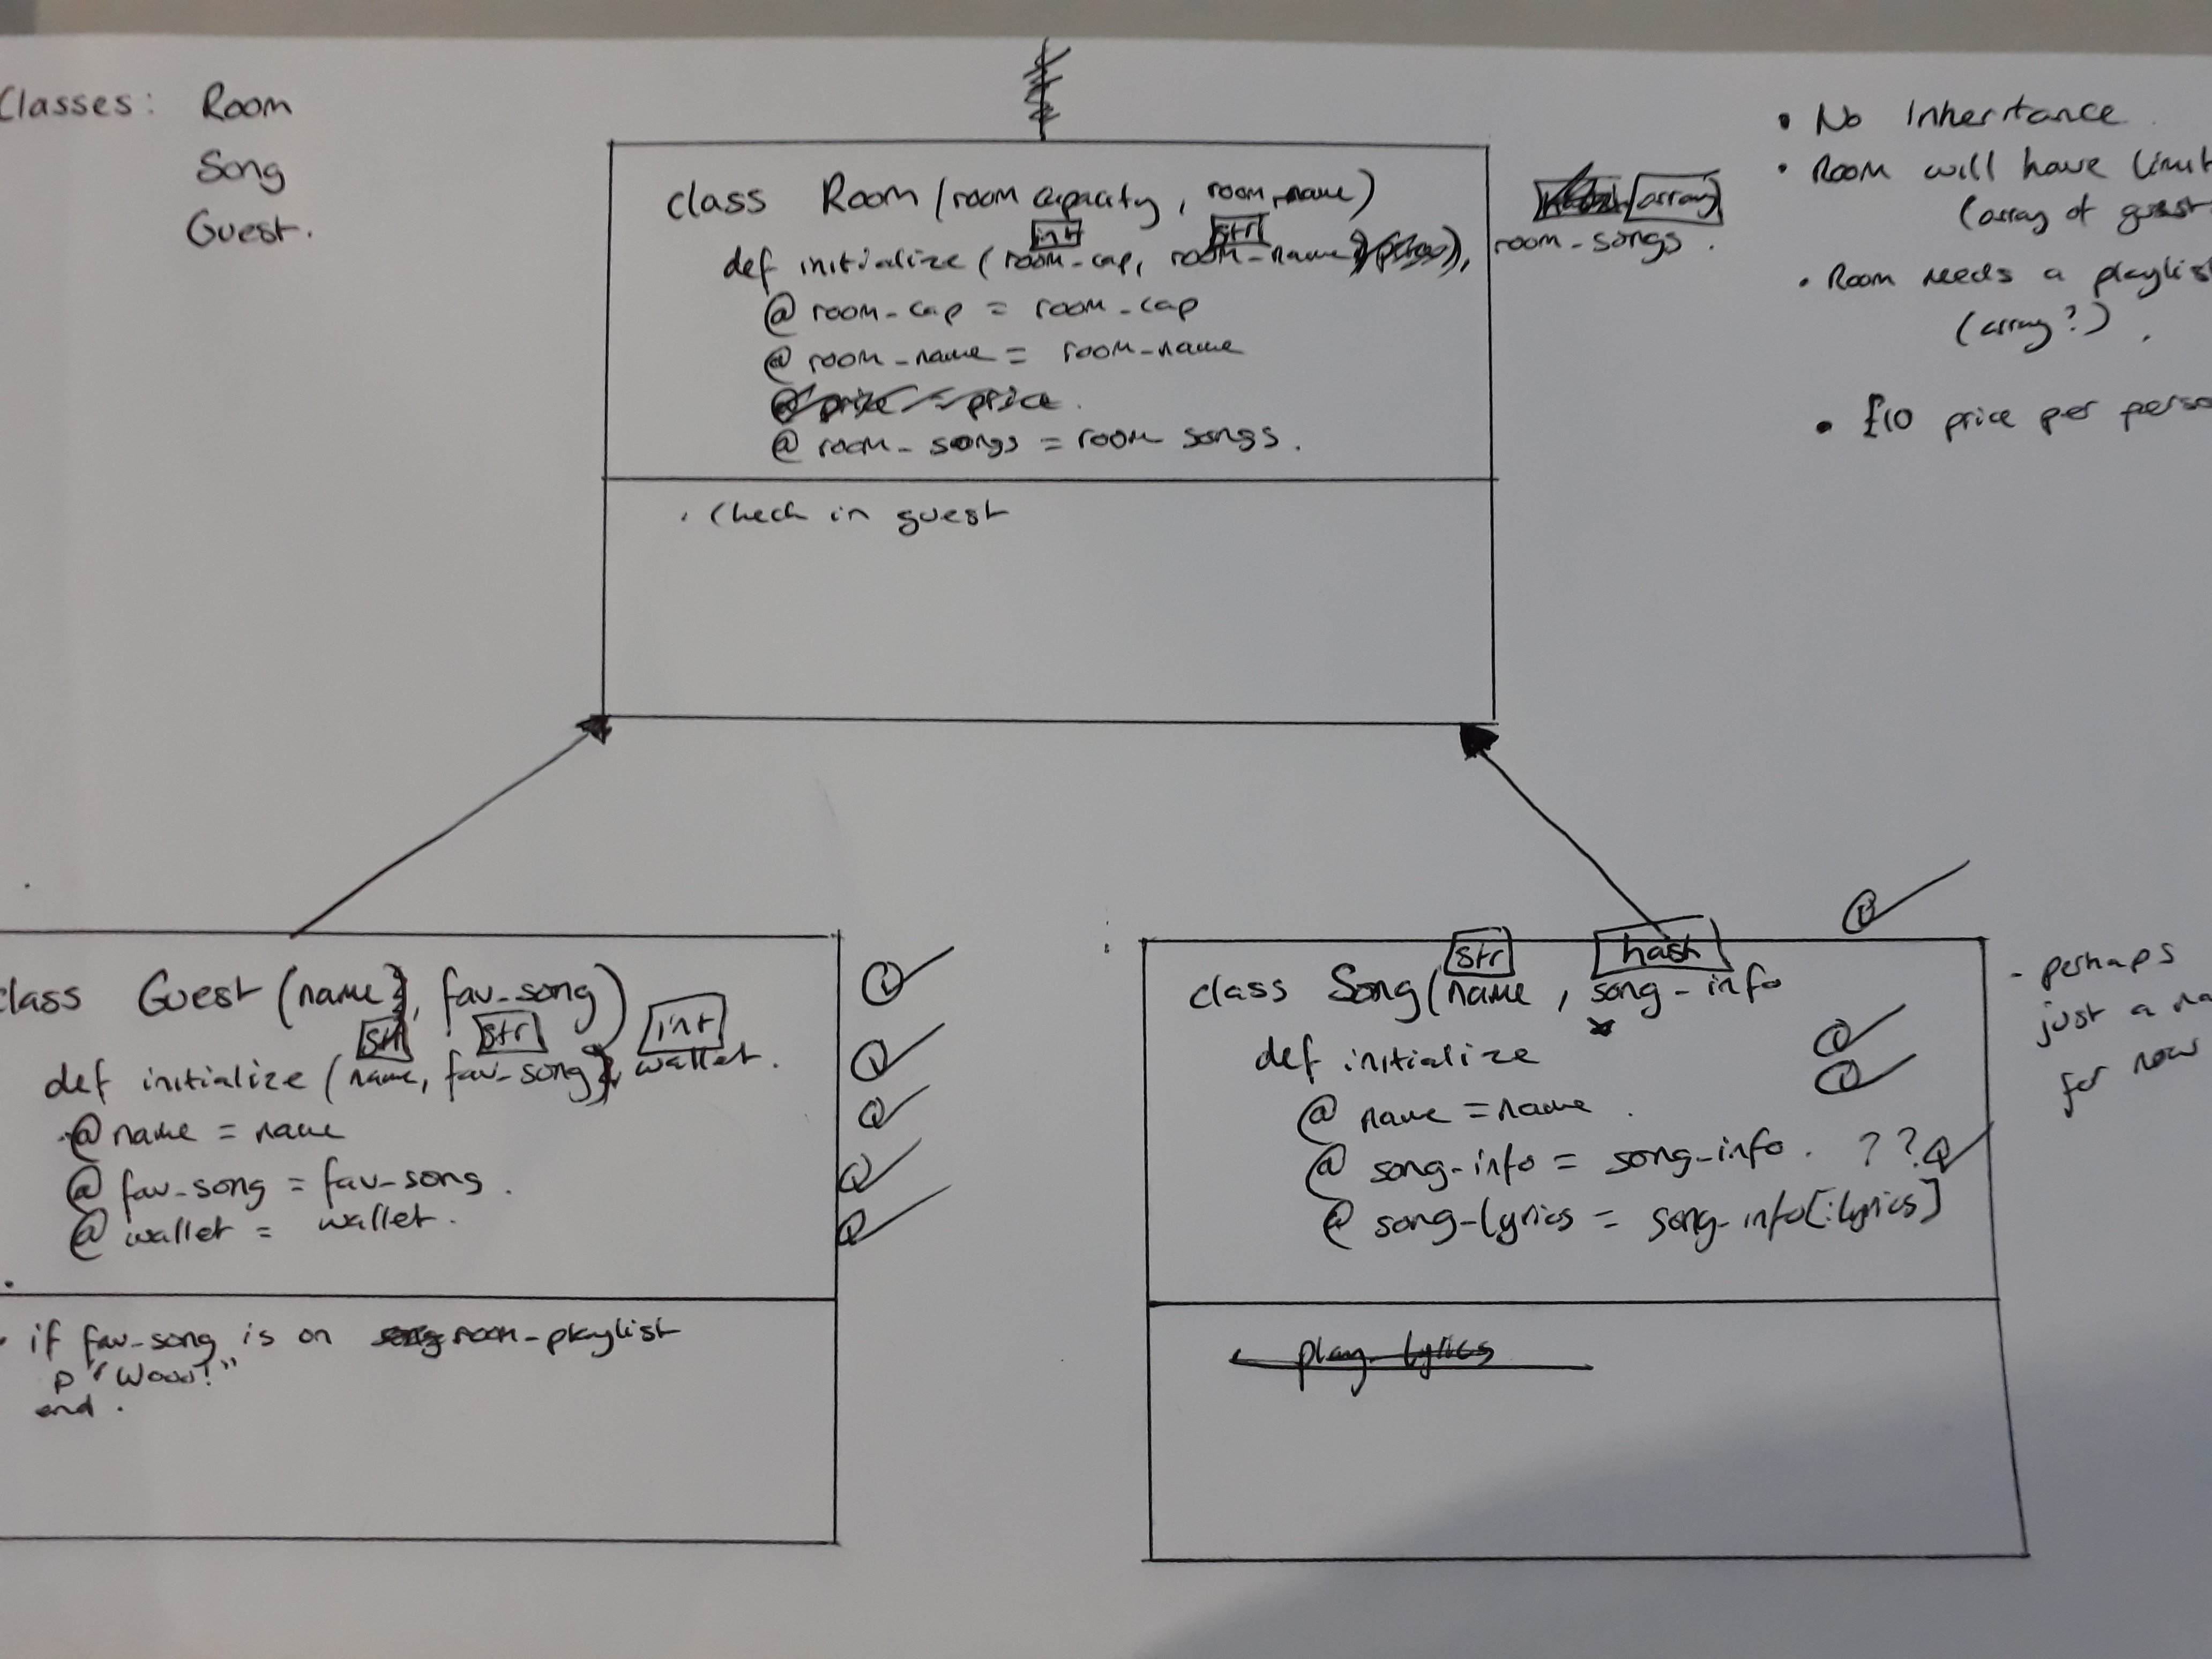 Classes: Room
Song
Guest.
class Room (room capacity, room_name)
int str array
def initialize (room_cap, room_name), room_songs.
@ room_cap = room_cap
@ room_name = room_name
@ price = price.
@ room_songs = room songs.
• Check in guest
• No Inheritance.
• Room will have limit
(array of guest
• Room needs a playlis
(array?).
• £10 price per perso
class Guest (name, fav_song)
str str int
def initialize (name, fav_song), wallet.
@ name = name
@ fav_song = fav_song.
@ wallet = wallet.
• if fav_song is on room-playlist
p "Wooo!"
end.
str hash
class Song (name, song-info
def initialize
@ name = name.
@ song-info = song-info. ??
@ song-lyrics = song-info[:lyrics]
play lyrics
- perhaps
just a na
for now